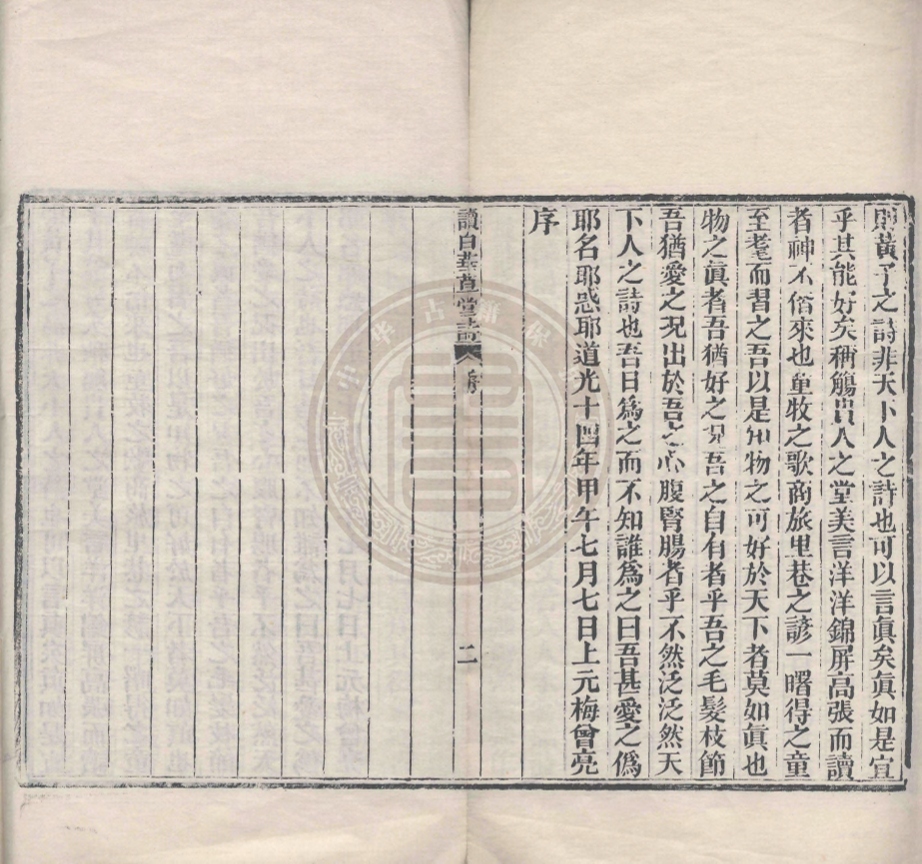 則黃子之詩非天下人之詩也可以言眞矣眞如是宜
乎其能好矣稱觴貴人之堂美言洋洋錦屏高張而讀
者神不偕來也童牧之歌商旅里巷之諺一曙得之童
至耄而習之吾以是知物之可好於天下者莫如眞也
物之眞者吾猶好之况吾之自有者乎吾之毛髮枝節
吾猶愛之况出於吾之心腹腎腸者乎不然泛泛然天
下人之詩也吾日爲之而不知誰爲之曰吾甚愛之僞
耶名耶惑耶道光十四年甲午七月七日上元梅曾亮
序
讀白華草堂詩 序 二